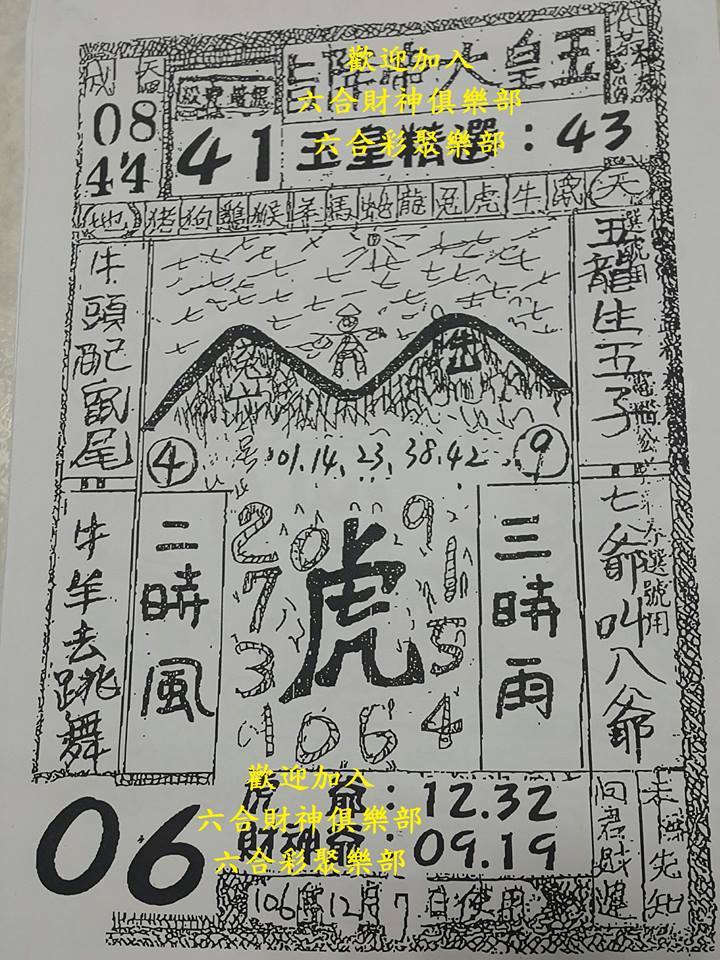 歡迎加入
六合財神俱樂部
六合彩聚樂部
大皇玉
08
44
41 玉皇精選：43
猪狗鷄猴羊馬蛇龍兔虎牛鼠天
選號用
牛頭配鼠尾
五龍生五子
4
01.14.23.38.42
9
牛羊去跳舞
二時風
2
0
9
7
虎
1
3
5
1
0
6
4
三時雨
七爺叫八爺
選號用
歡迎加入
六合財神俱樂部
六合彩聚樂部
06
虎爺：12.32
財神爺：09.19
先知
106年12月7日使用